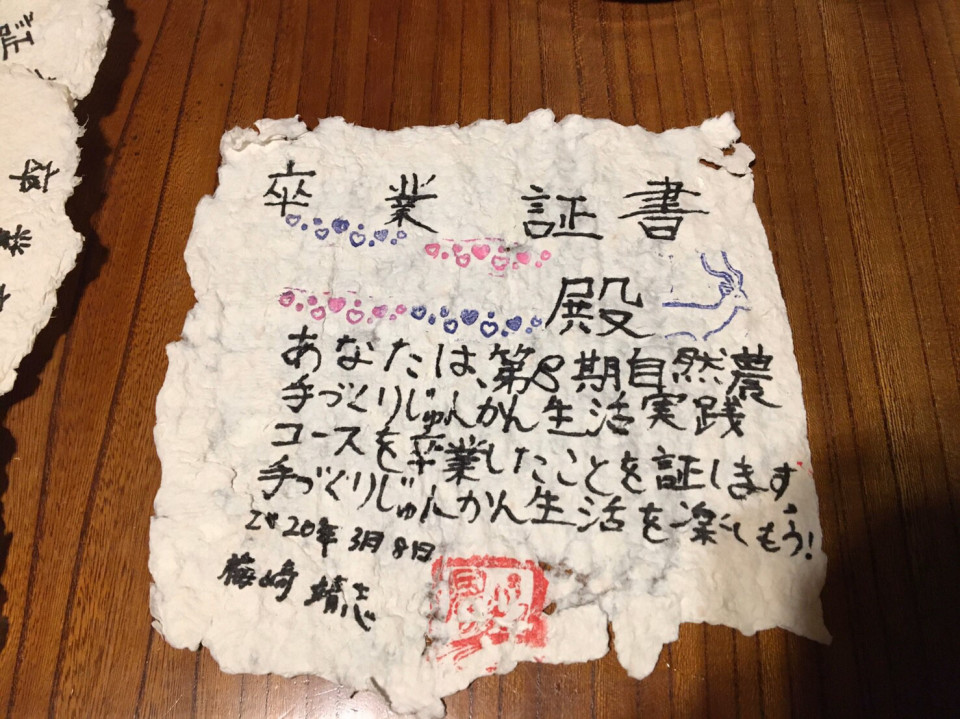 卒業証書
殿
あなたは、第8期自然農
手づくりじゅんかん生活実践
コースを卒業したことを証します
手づくりじゅんかん生活を楽しもう!
2020年3月8日
梅崎靖志
証
卒業